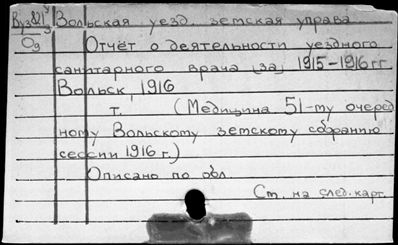 Вольская уезд. земская управа
О9 Отчёт о деятельности уездного
санитарного врача (за) 1915-1916гг
Вольск, 1916
т. (Медицина 51-му очеред
ному Вольскому земскому собранию
сессии 1916 г.)
Описано по обл.
См. на след. карт.